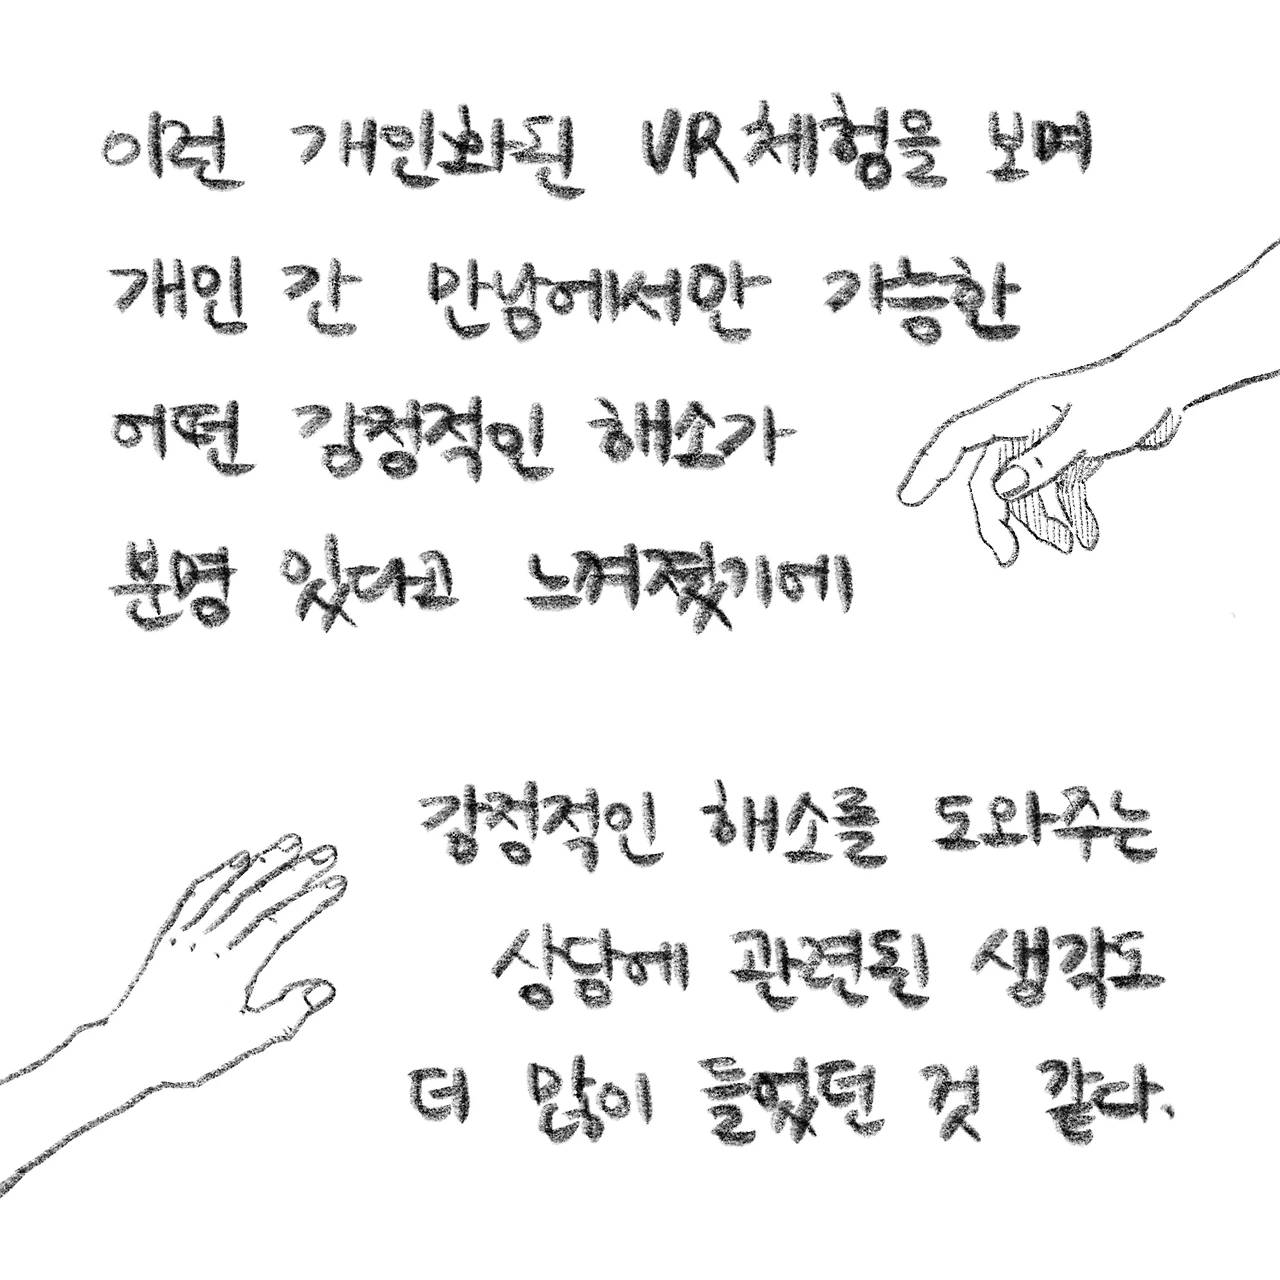 이런 개인화된 VR체험을 보며
개인 간 만남에서만 가능한
어떤 감정적인 해소가
분명 있다고 느껴졌기에
감정적인 해소를 도와주는
상담에 관련된 생각도
더 많이 들었던 것 같다.